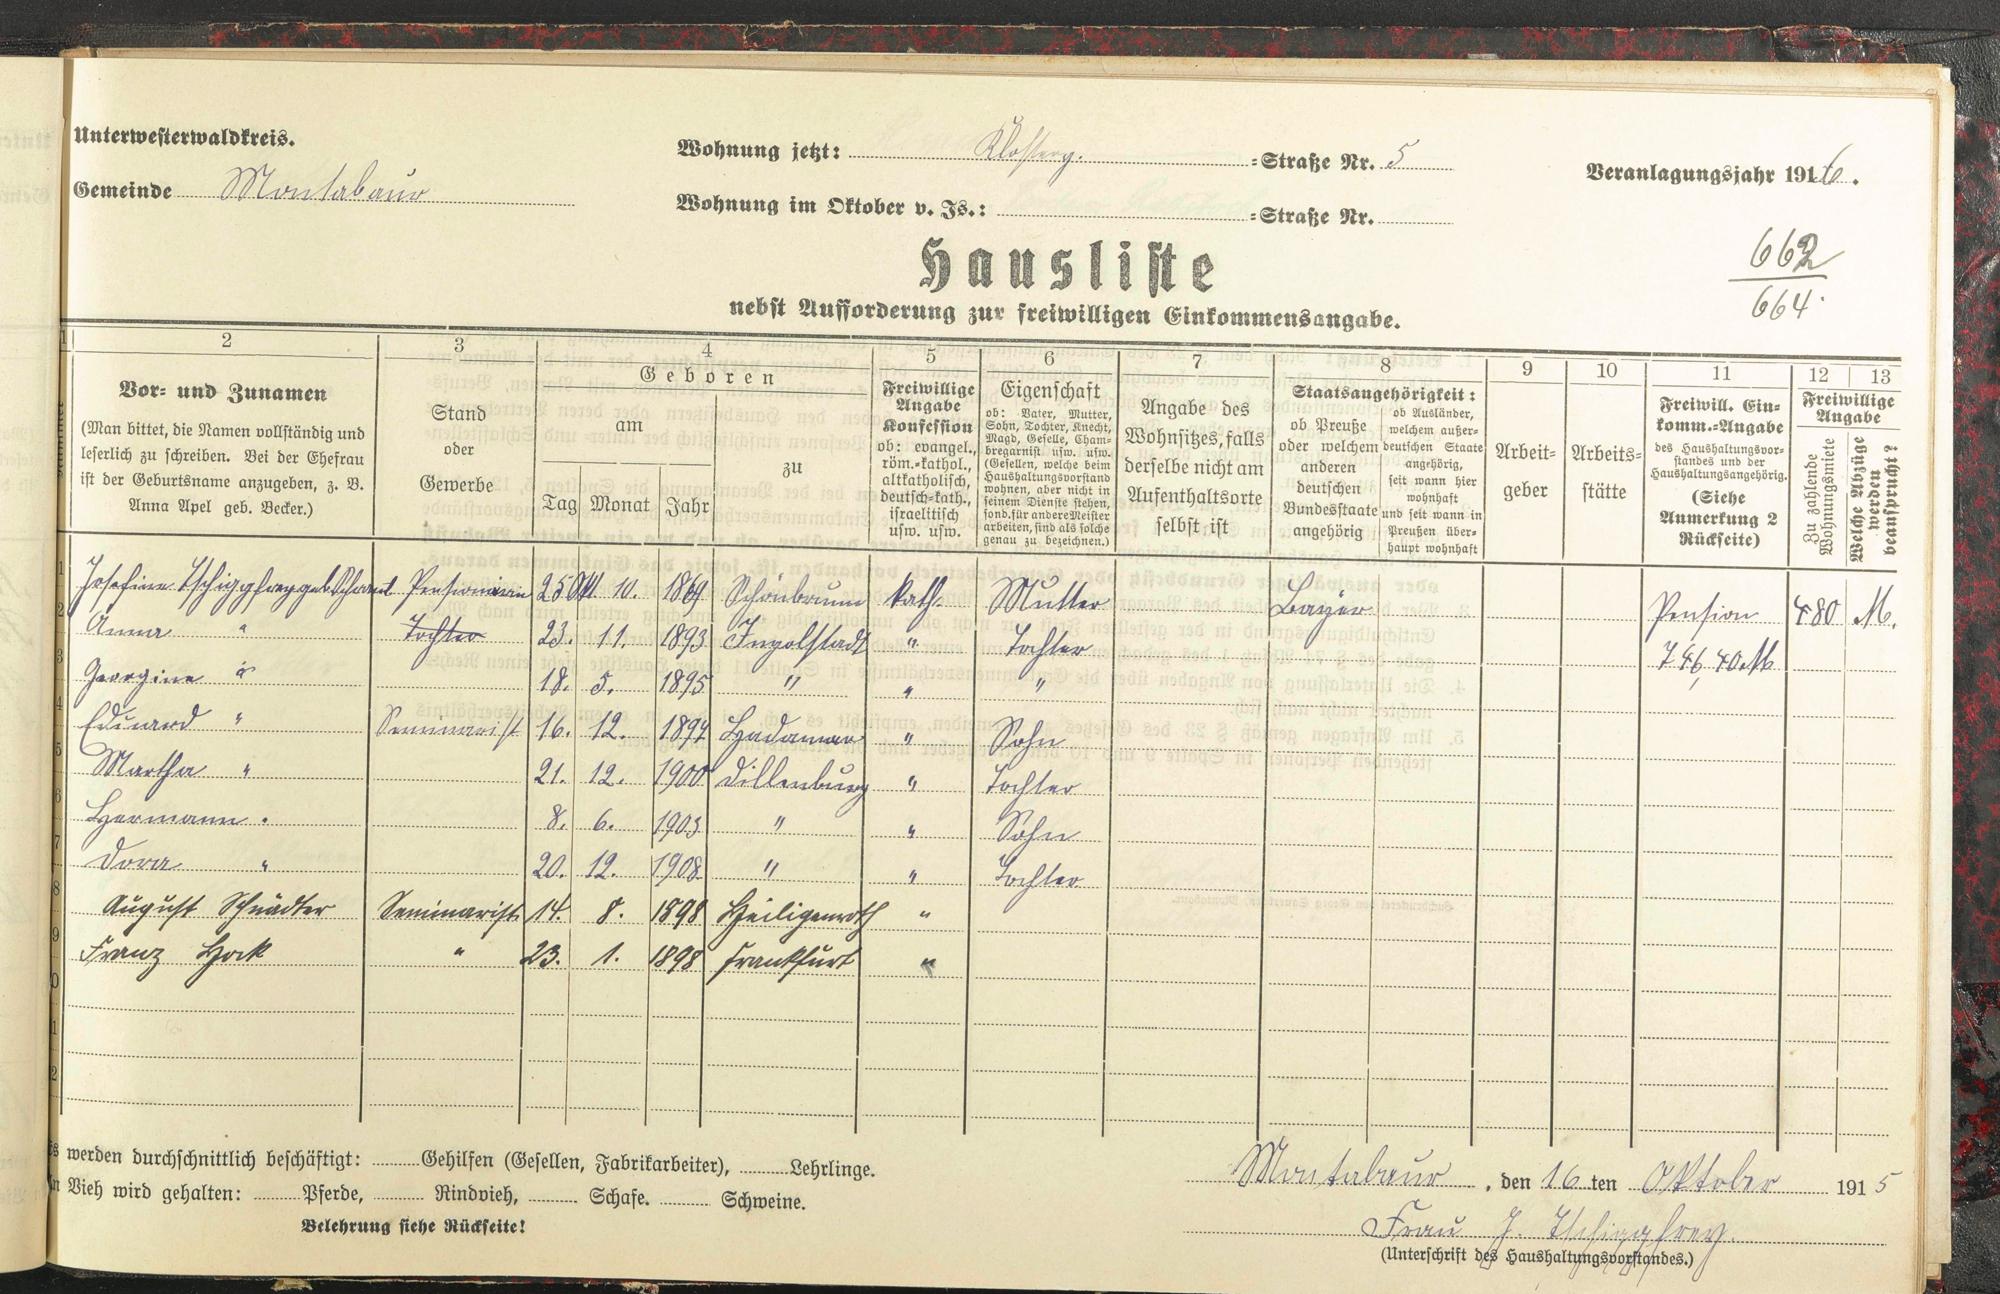 Unterwesterwaldkreis.
Gemeinde Montabaur
Wohnung jetzt: Klosterg. =Straße Nr. 5
Wohnung im Oktober v. Js.: =Straße Nr.
Veranlagungsjahr 1916.
662
664.
Hausliste
nebst Aufforderung zur freiwilligen Einkommensangabe.
1 2 3 4 5 6 7 8 9 10 11 12 13
Vor- und Zunamen
(Man bittet, die Namen vollständig und
leserlich zu schreiben. Bei der Ehefrau
ist der Geburtsname anzugeben, z. B.
Anna Apel geb. Becker.)
Stand
oder
Gewerbe
Geboren
am
Tag Monat Jahr
zu
Freiwillige
Angabe
Konfession
ob: evangel.,
röm.-kathol.,
altkatholisch,
deutsch-kath.,
israelitisch
usw. usw.
Eigenschaft
ob: Vater, Mutter,
Sohn, Tochter, Knecht,
Magd, Geselle, Cham-
bregarnist usw. usw.
(Gesellen, welche beim
Haushaltungsvorstand
wohnen, aber nicht in
seinem Dienste stehen,
sond. für andere Meister
arbeiten, sind als solche
genau zu bezeichnen.)
Angabe des
Wohnsitzes, falls
derselbe nicht am
Aufenthaltsorte
selbst ist
Staatsangehörigkeit:
ob Preuße
oder welchem
anderen
deutschen
Bundesstaate
angehörig
ob Ausländer,
welchem außer-
deutschen Staate
angehörig,
seit wann hier
wohnhaft
und seit wann in
Preußen über-
haupt wohnhaft
Arbeit-
geber
Arbeits-
stätte
Freiwill. Ein-
komm.-Angabe
des Haushaltungsvor-
standes und der
Haushaltungsangehörig.
(Siehe
Anmerkung 2
Rückseite)
Freiwillige
Angabe
Zu zahlende
Wohnungsmiete
Welche Abzüge
werden
beansprucht?
1 Josefine Tschiggfrey geb. Pensionärin 25 10. 1869 Schönbrunn kath. Mutter Bayer Pension 480 M.
2 Anna " Tochter 23. 11. 1893 Ingolstadt " Tochter 746,40 M
3 Georgine " 18. 5. 1895 " " "
4 Eduard " Seminarist 16. 12. 1897 Hadamar " Sohn
5 Martha " 21. 12. 1900 Dillenburg " Tochter
6 Hermann " 8. 6. 1903 " " Sohn
7 Dora " 20. 12. 1908 " " Tochter
8 August Schnädter Seminarist 14. 8. 1898 Heiligenroth "
9 Franz Hock " 23. 1. 1898 Frankfurt "
werden durchschnittlich beschäftigt: Gehilfen (Gesellen, Fabrikarbeiter), Lehrlinge.
Vieh wird gehalten: Pferde, Rindvieh, Schafe. Schweine.
Belehrung siehe Rückseite!
Montabaur, den 16 ten Oktober 1915
Frau J. Tschiggfrey.
(Unterschrift des Haushaltungsvorstandes.)